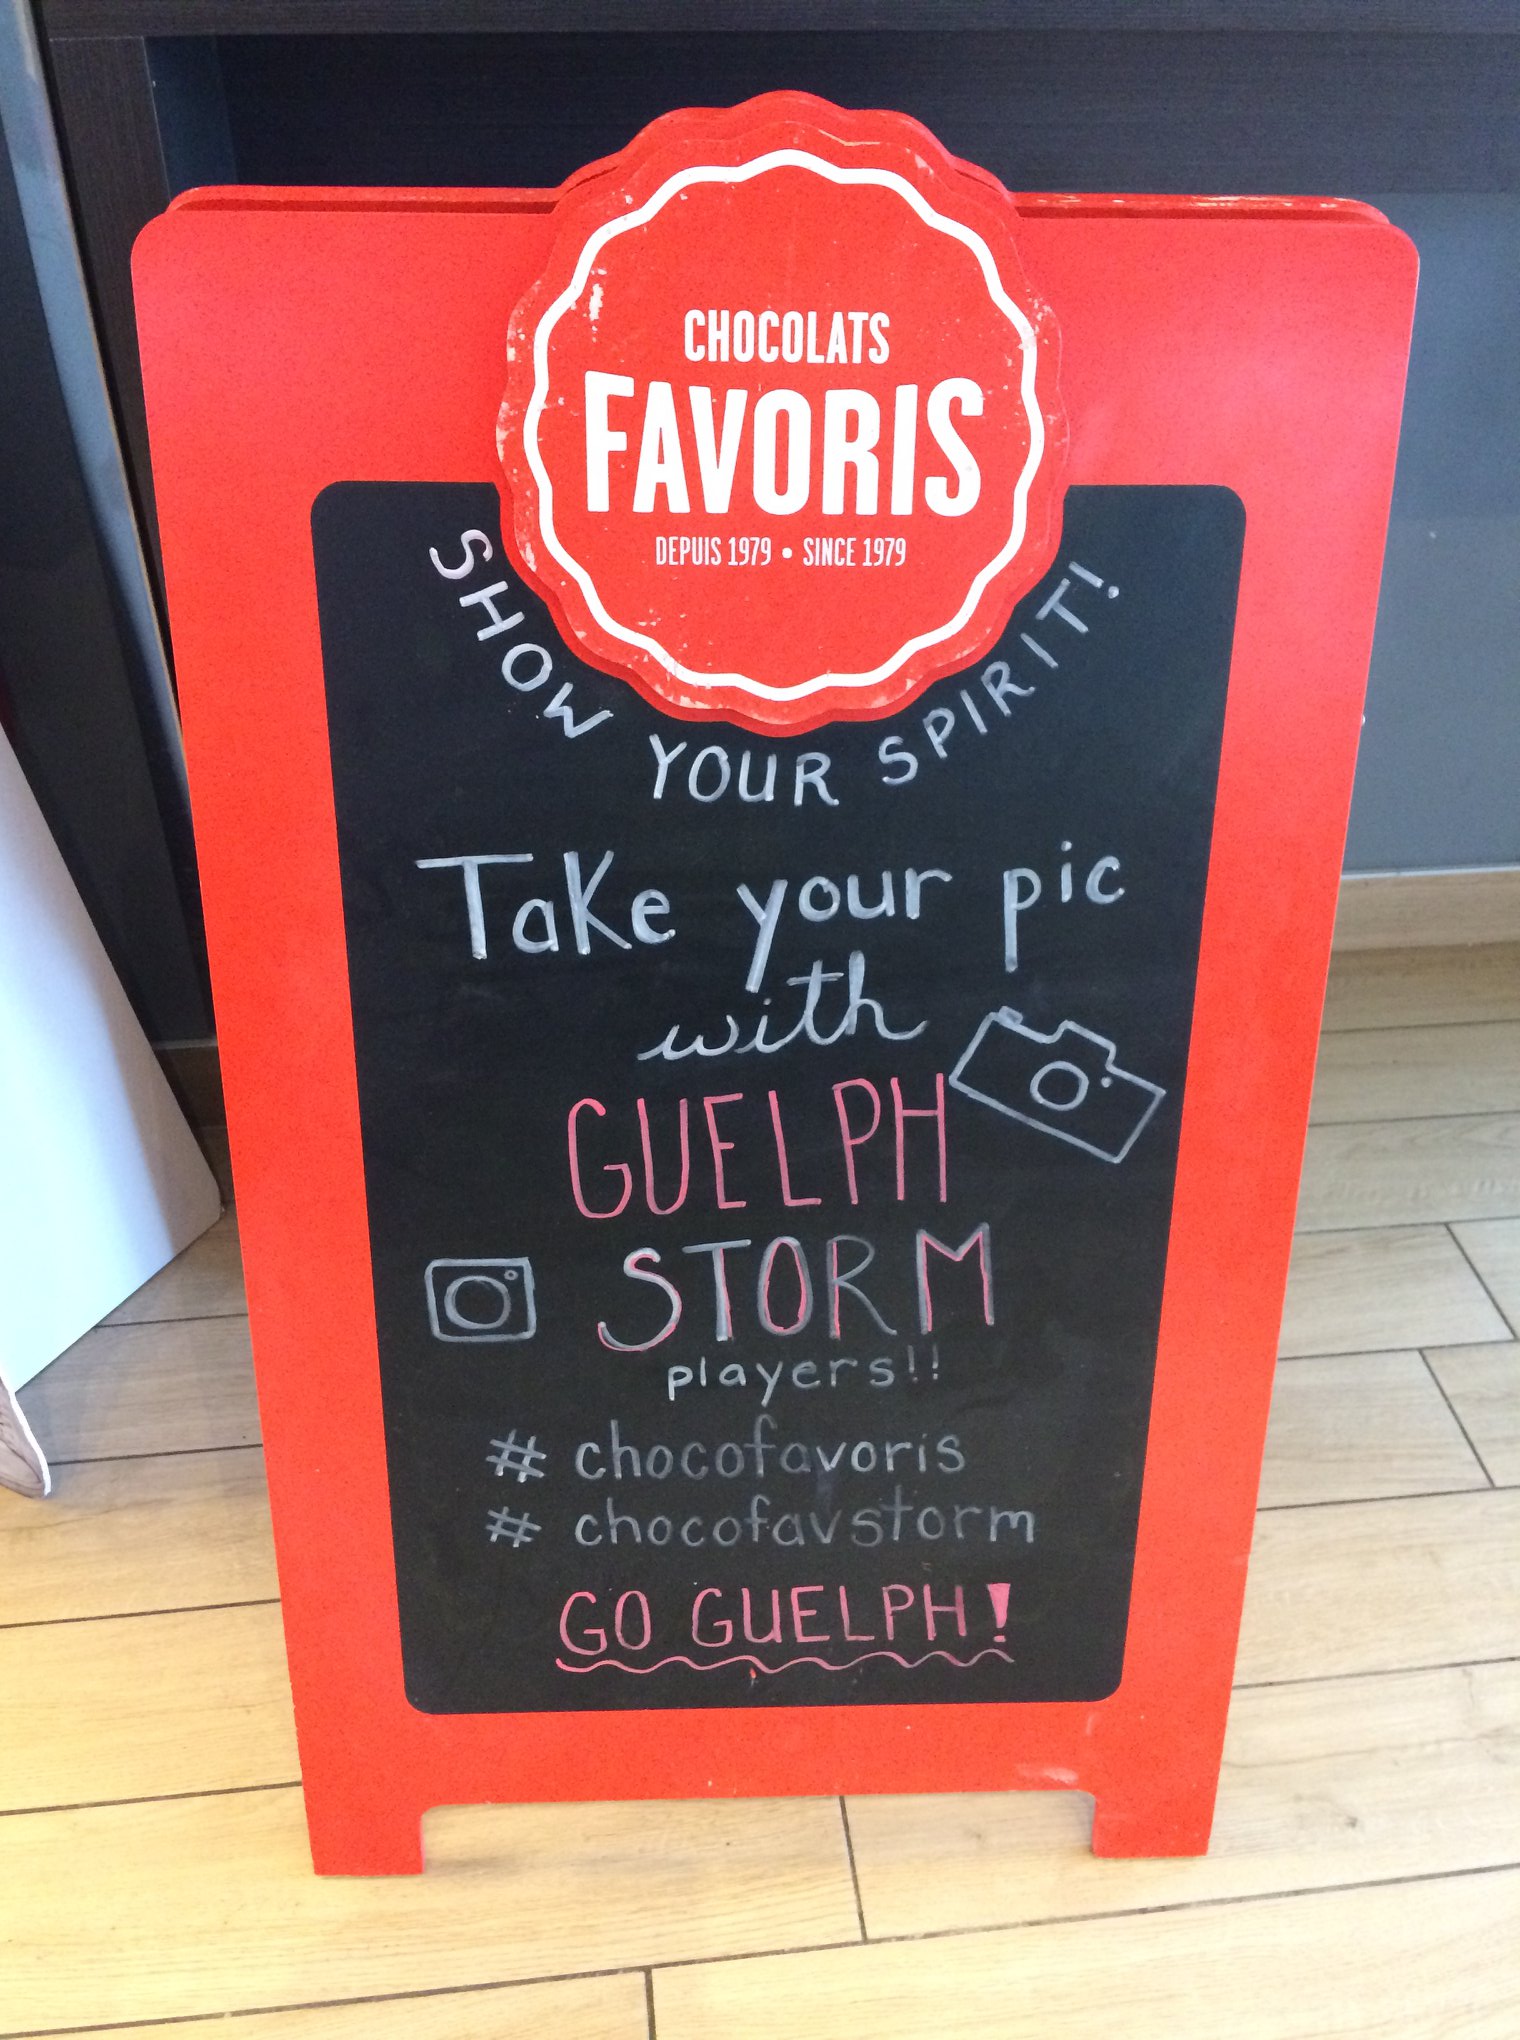 CHOCOLATS
FAVORIS
DEPUIS 1979 • SINCE 1979
SHOW YOUR SPIRIT!
Take your pic
with
GUELPH
STORM
players!!
# chocofavoris
# chocofavstorm
GO GUELPH!